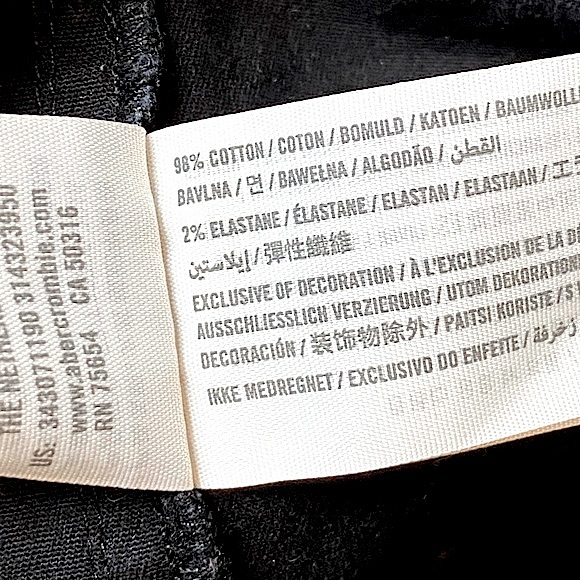 THE NETHER
314323950
US: 343071190
www.abercrombie.com
RN 75654 CA 50316
98% COTTON / COTON / BOMULD / KATOEN / BAUMWOLL
BAVLNA / 면 / BAWEŁNA / ALGODÃO / القطن
2% ELASTANE / ÉLASTANE / ELASTAN / ELASTAAN / エラ
إيلاستين / 彈性纖維
EXCLUSIVE OF DECORATION / À L'EXCLUSION DE LA DÉ
AUSSCHLIESSLICH VERZIERUNG / UTOM DEKORATION
DECORACIÓN / 装饰物除外 / PAITSI KORISTE / ST
IKKE MEDREGNET / EXCLUSIVO DO ENFEITE /